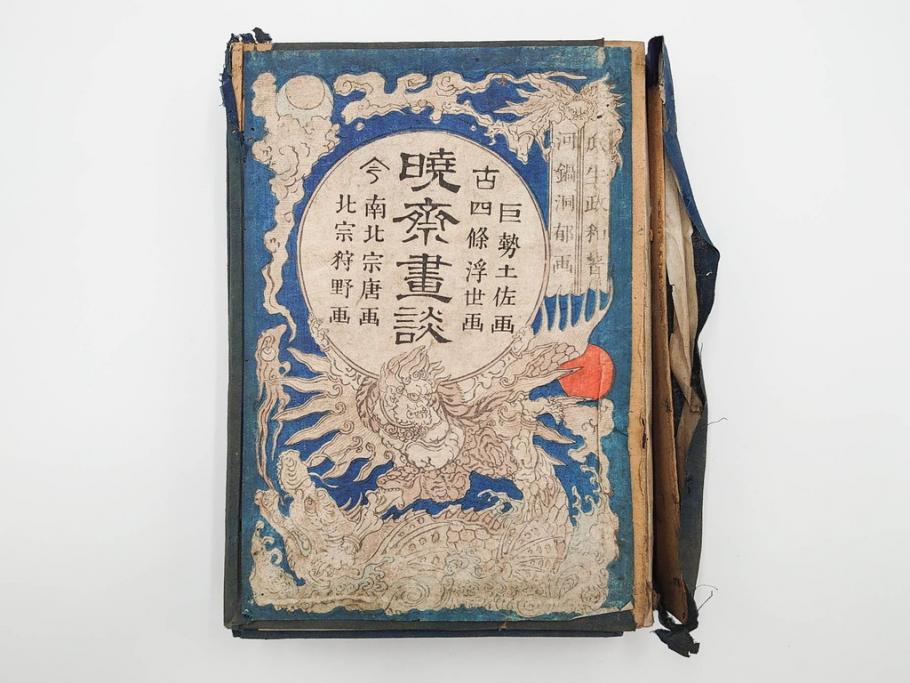 瓜生政和
河鍋洞郁画
古
巨勢土佐画
四條浮世画
曉齋畫談
今
南北宗唐画
北宗狩野画